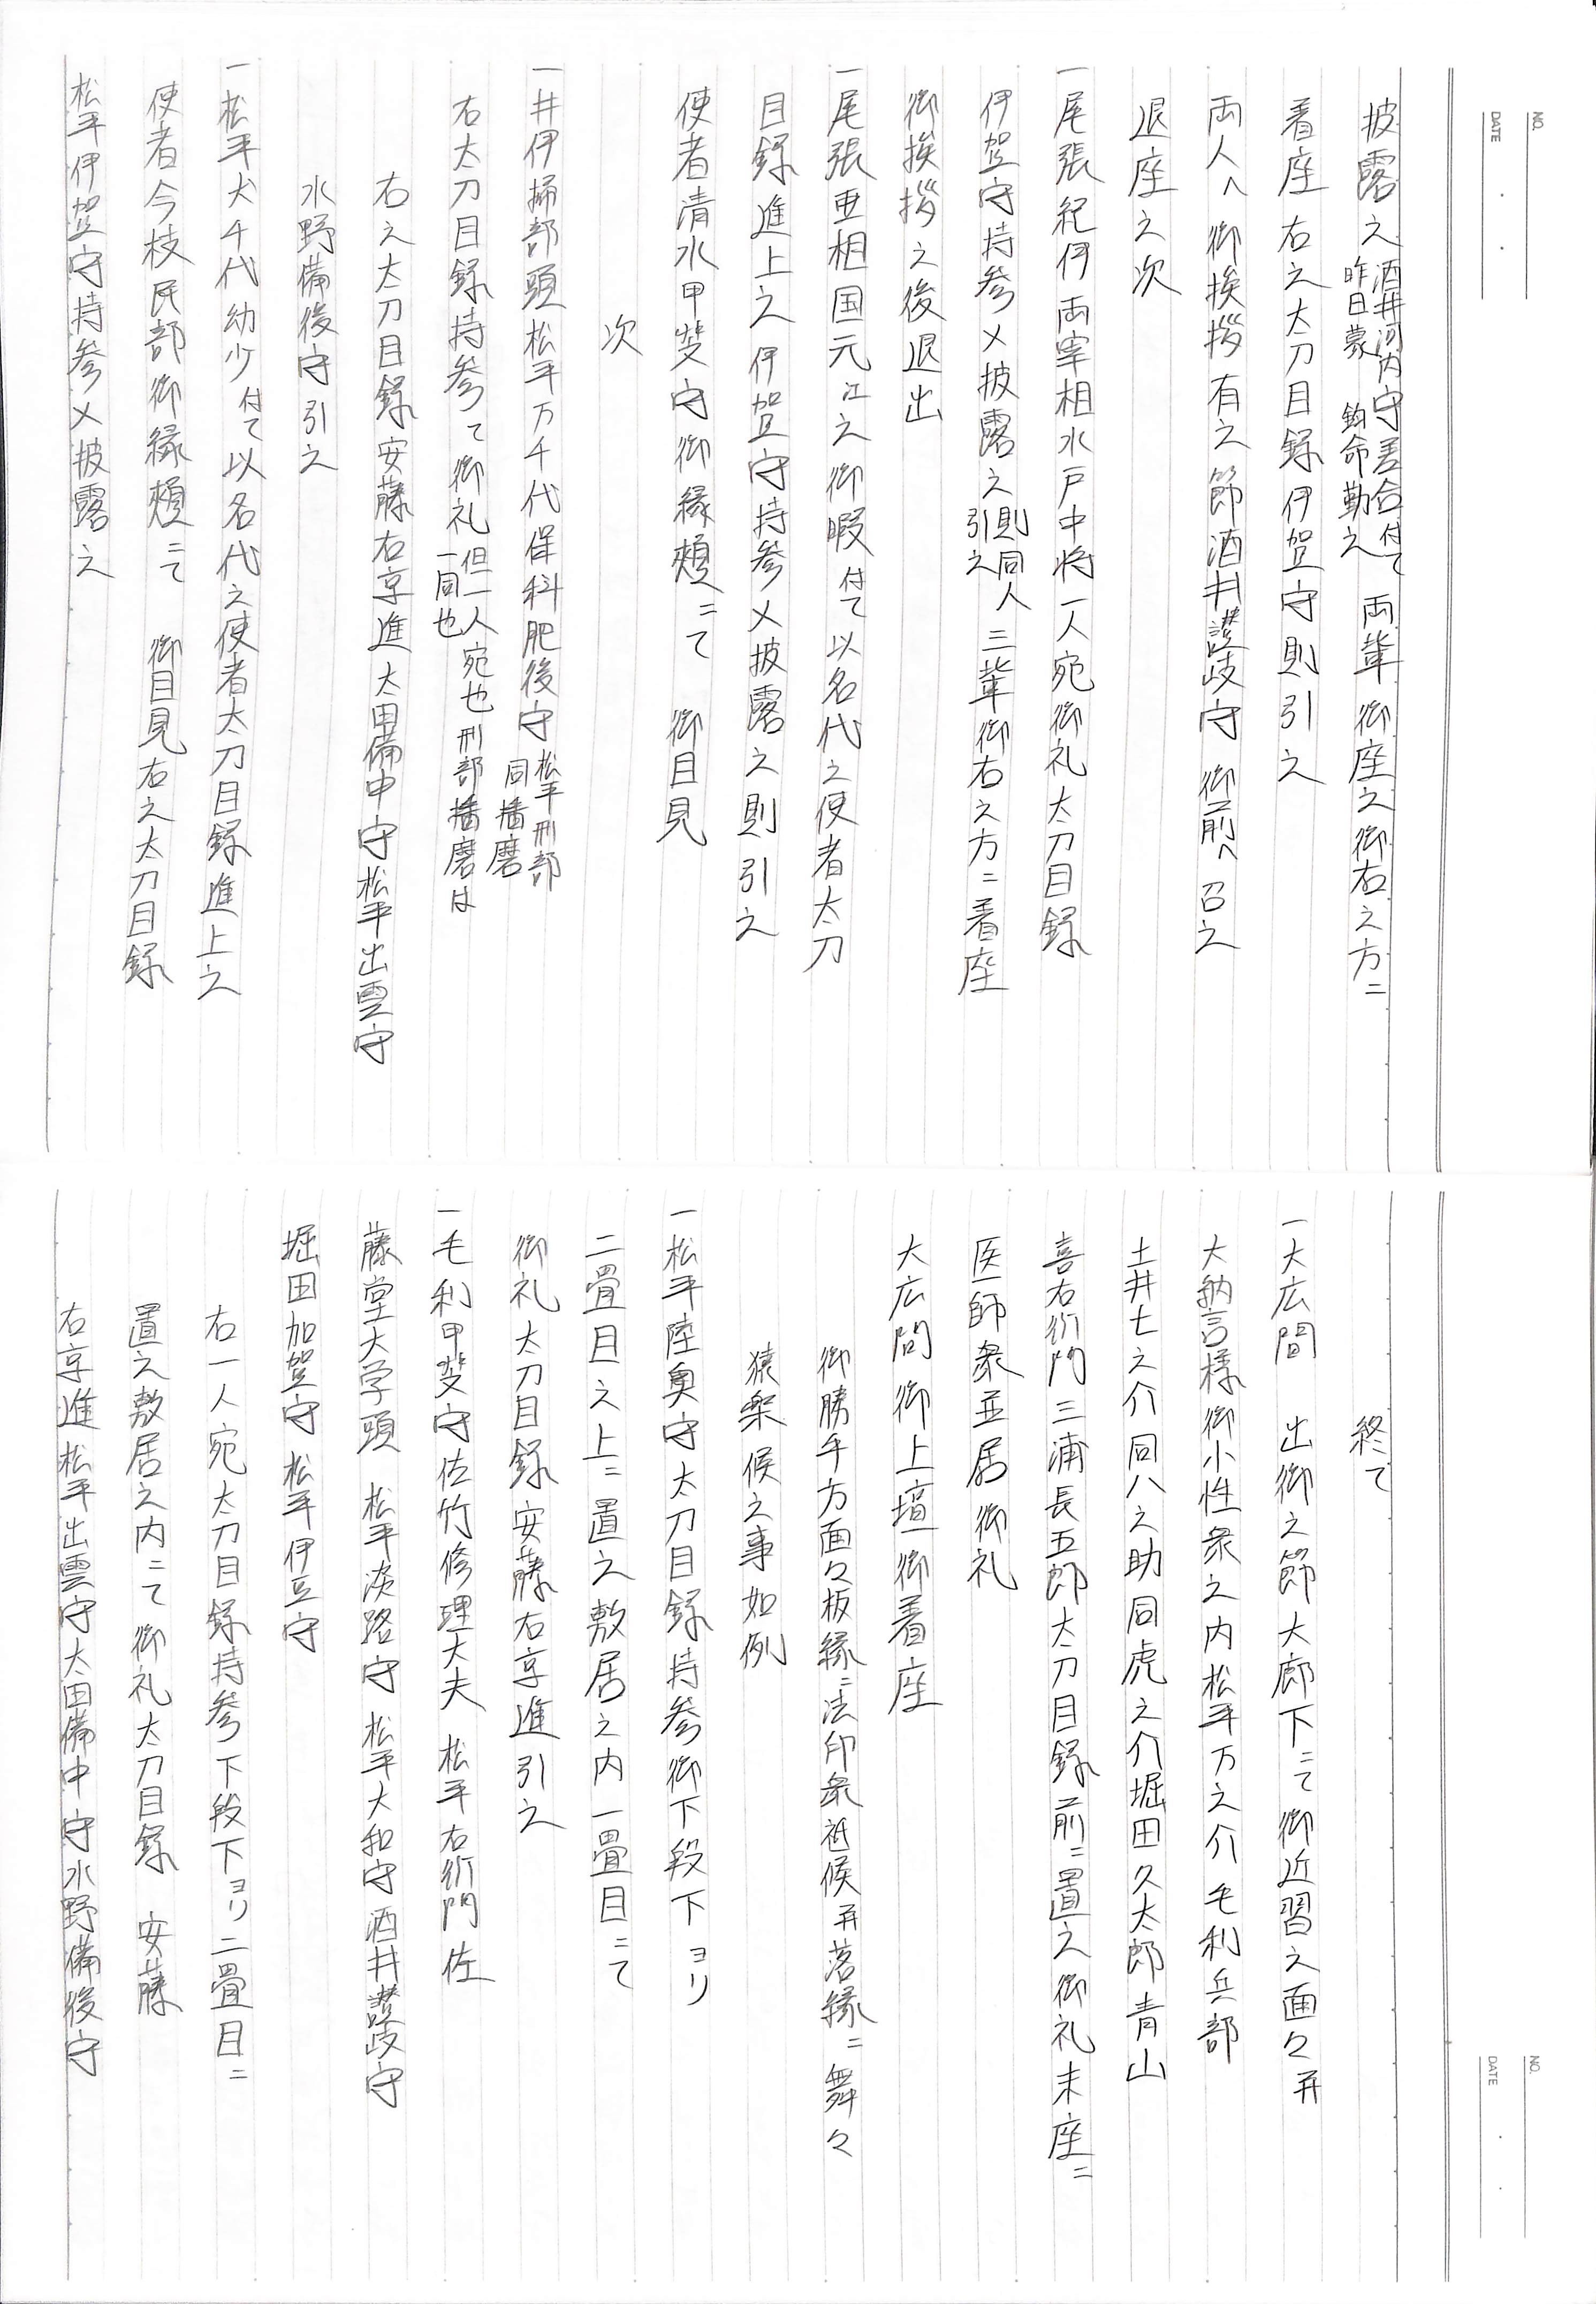 NO.
DATE
披露之 酒井河内守差合付て 両輩 御座之御右之方ニ
昨日蒙 鈞命勤之
着座 右之太刀目録伊賀守則引之
両人へ 御挨拶有之節酒井讃岐守 御前へ召之
退座之次
一尾張紀伊両宰相水戸中将一人宛御礼太刀目録
伊賀守持参〆披露之 則同人 三輩御右之方ニ着座
引之
御挨拶之後退出
一尾張亜相国元江之御暇付て以名代之使者太刀
目録進上之伊賀守持参〆披露之則引之
使者清水甲斐守御縁頬ニて 御目見
次
一井伊掃部頭松平万千代保科肥後守 松平刑部
同播磨
右太刀目録持参て御礼 但一人宛也 刑部播磨は
一同也
右之太刀目録安藤右京進太田備中守松平出雲守
水野備後守引之
一松平犬千代幼少付て以名代之使者太刀目録進上之
使者今枝民部御縁頬ニて 御目見右之太刀目録
松平伊賀守持参〆披露之
NO.
DATE
終て
一大広間 出御之節大廊下ニて御近習之面々并
大納言様御小性衆之内松平万之介毛利兵部
土井七之介同八之助同虎之介堀田久太郎青山
喜右衛門三浦長五郎太刀目録前ニ置之御礼末座ニ
医師衆並居御礼
大広間御上壇御着座
御勝手方面々板縁ニ法印衆祗候并落縁ニ舞々
猿楽候之事如例
一松平陸奥守太刀目録持参御下段下ヨリ
二畳目之上ニ置之敷居之内一畳目ニて
御礼太刀目録安藤右京進引之
一毛利甲斐守佐竹修理大夫 松平右衛門佐
藤堂大学頭 松平淡路守 松平大和守酒井讃岐守
堀田加賀守 松平伊豆守
右一人宛太刀目録持参下段下ヨリ二畳目ニ
置之敷居之内ニて御礼太刀目録 安藤
右京進松平出雲守太田備中守水野備後守